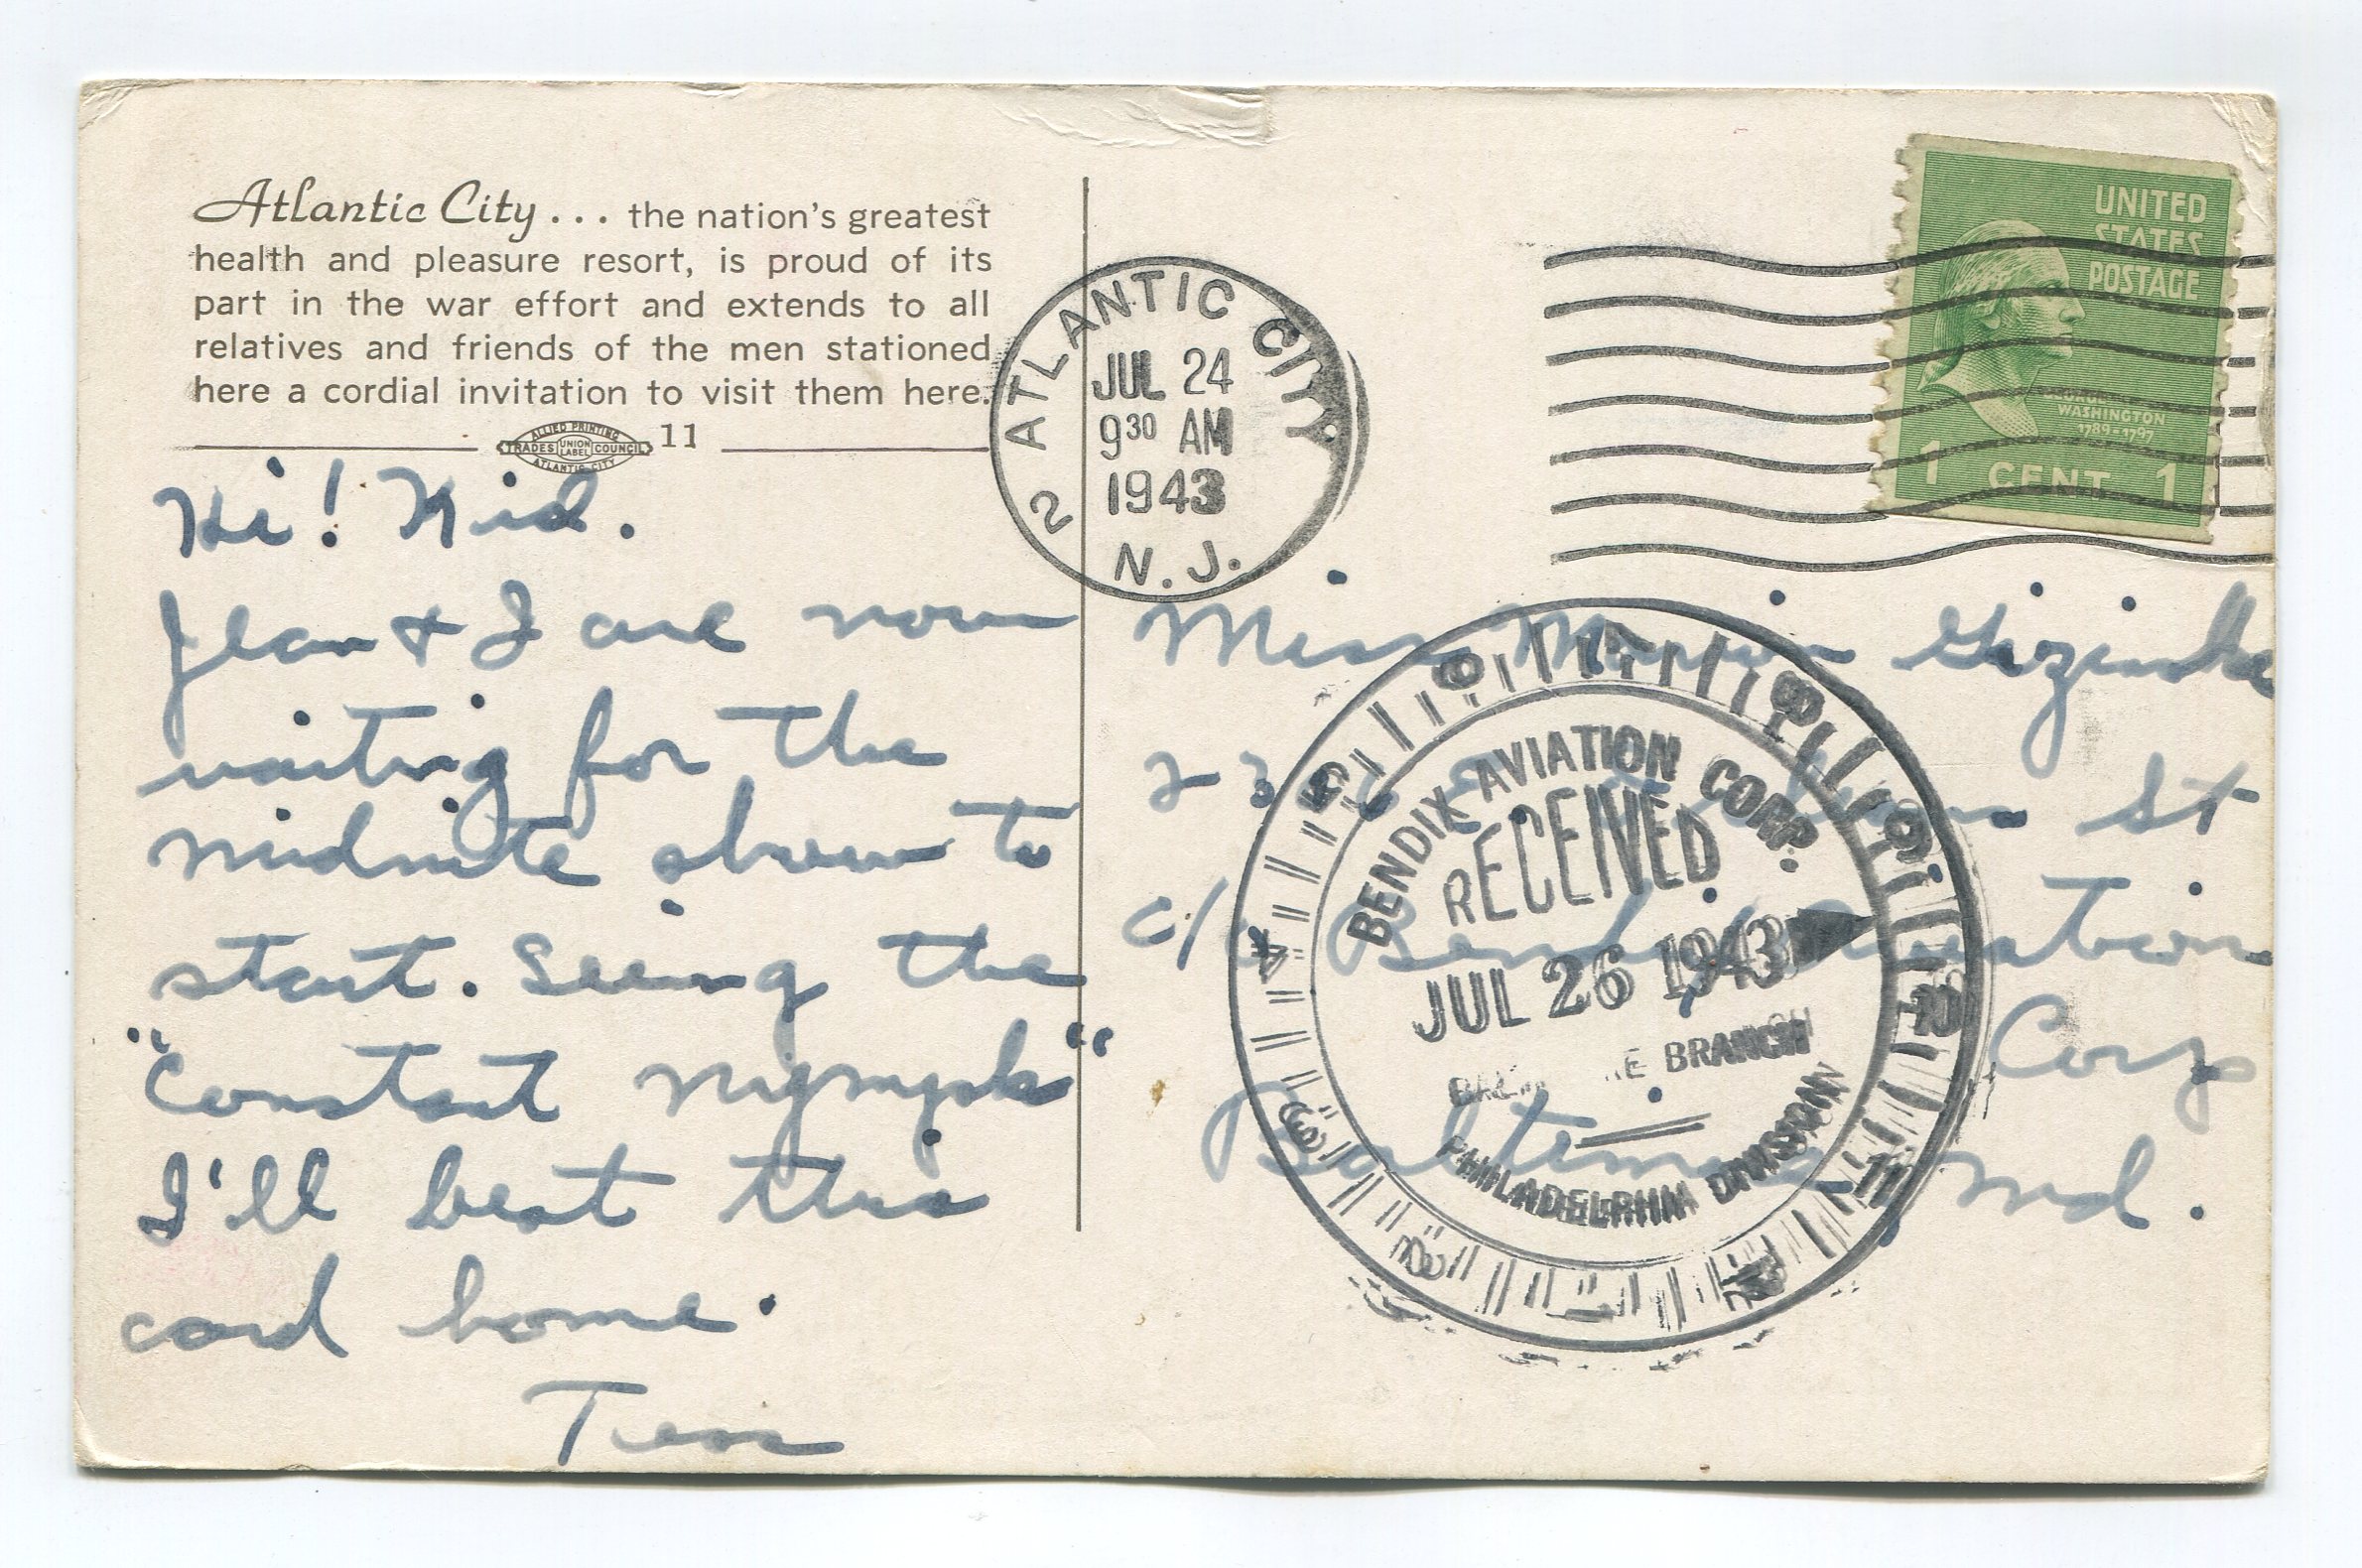 Atlantic City... the nation's greatest
health and pleasure resort, is proud of its
part in the war effort and extends to all
relatives and friends of the men stationed
here a cordial invitation to visit them here.
ALLIED PRINTING
TRADES UNION LABEL COUNCIL
ATLANTIC CITY
11
Hi! Kid.
Jean & I are now
waiting for the
midnite show to
start. Seeing the
"Constant Nymph"
I'll beat this
card home.
ATLANTIC CITY
2
JUL 24
9 30 AM
1943
N.J.
UNITED
STATES
POSTAGE
GEORGE
WASHINGTON
1789-1797
1 CENT 1
Miss Marion
St
c/o Bendix Aviation
Corp
Baltimore Md.
BENDIX AVIATION CORP.
RECEIVED
JUL 26 1943
BRANCH
PHILADELPHIA DIVISION
1 2 3 4 5 6 8 9 10 11